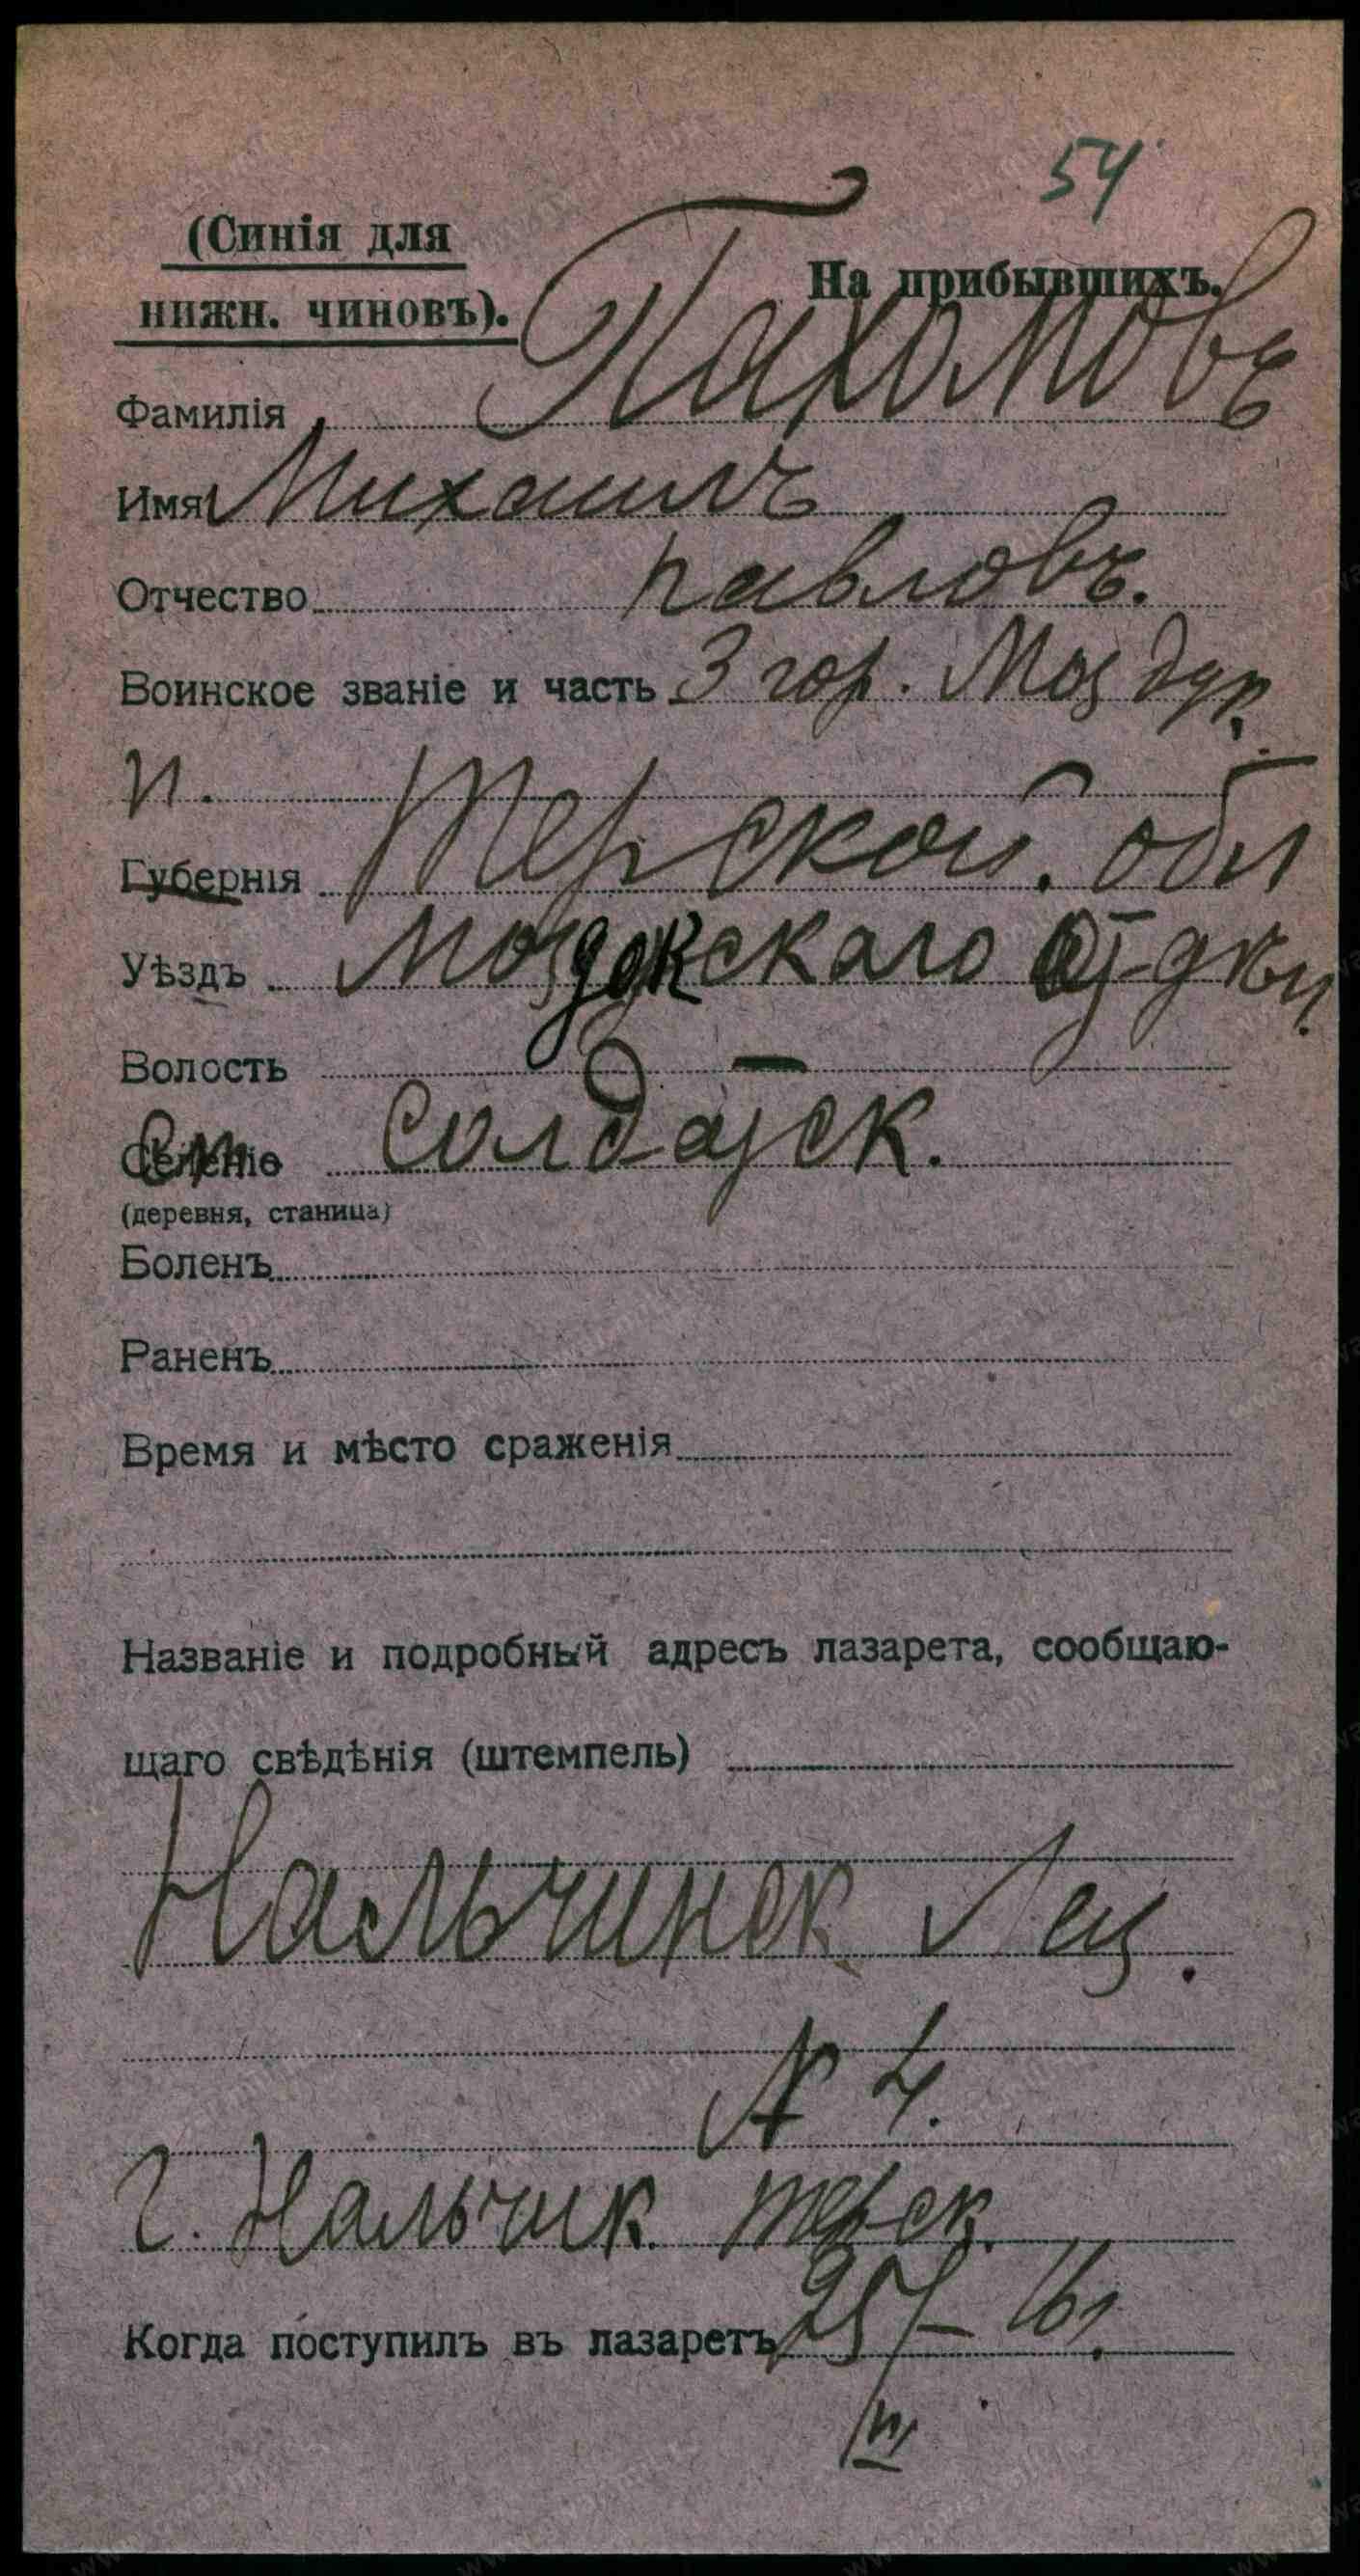 54
(Синія для
нижн. чиновъ).
На прибывшихъ.
Фамилія Пахомовъ
Имя Михаилъ
Отчество Павловъ.
Воинское званіе и часть 3 гор. Моз
п.
Губернія Терской обл
Уѣздъ Моздокскаго
Волость —
Селеніе Солдатск.
(деревня, станица)
Боленъ
Раненъ
Время и мѣсто сраженія
Названіе и подробный адресъ лазарета, сообщаю-
щаго свѣдѣнія (штемпель)
Нальчинск Лаз.
№ 4.
г. Нальчик. Терск.
Когда поступилъ въ лазаретъ 25/ – 16 г.